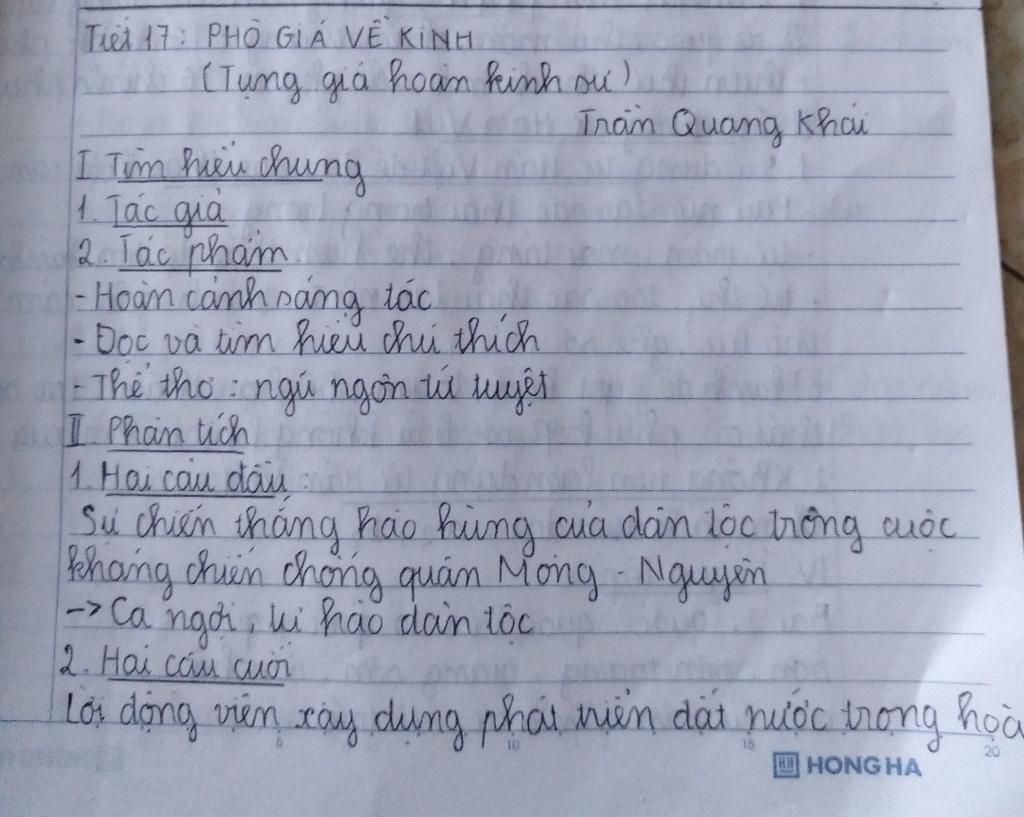 Tiết 17: PHÒ GIÁ VỀ KINH
(Tụng giá hoàn kinh sư)
Trần Quang Khải
I Tìm hiểu chung
1. Tác giả
2. Tác phẩm
- Hoàn cảnh sáng tác
- Đọc và tìm hiểu chú thích
- Thể thơ: ngũ ngôn tứ tuyệt
II Phân tích
1. Hai câu đầu:
Sự chiến thắng hào hùng của dân tộc trong cuộc
kháng chiến chống quân Mông - Nguyên
-> Ca ngợi, tự hào dân tộc
2. Hai câu cuối
Lời động viên xây dựng phát triển đất nước trong hoà
5 10 15 20
HH HONG HA